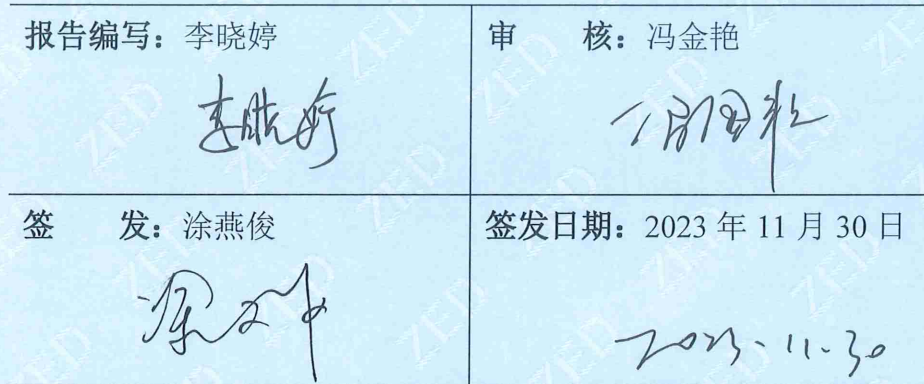 报告编写：李晓婷
审 核：冯金艳
李晓婷
签 发：涂燕俊
签发日期：2023 年 11 月 30 日
2023-11-30
ZED